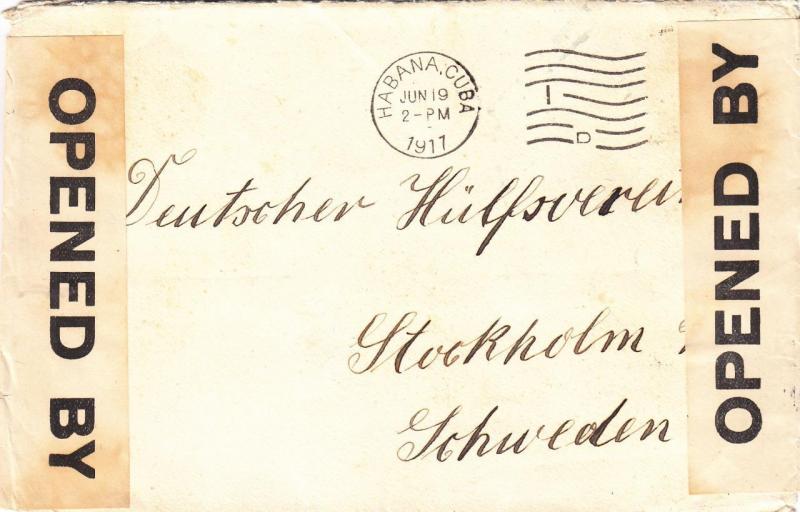 OPENED BY
HABANA, CUBA
JUN 19
2-PM
1917
I
D
Deutscher Hülfsverein
Stockholm
Schweden
OPENED BY